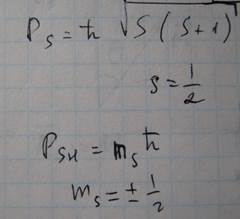 P_s = ħ √S(S+1)
s = 1/2
P_sн = m_s ħ
m_s = ± 1/2